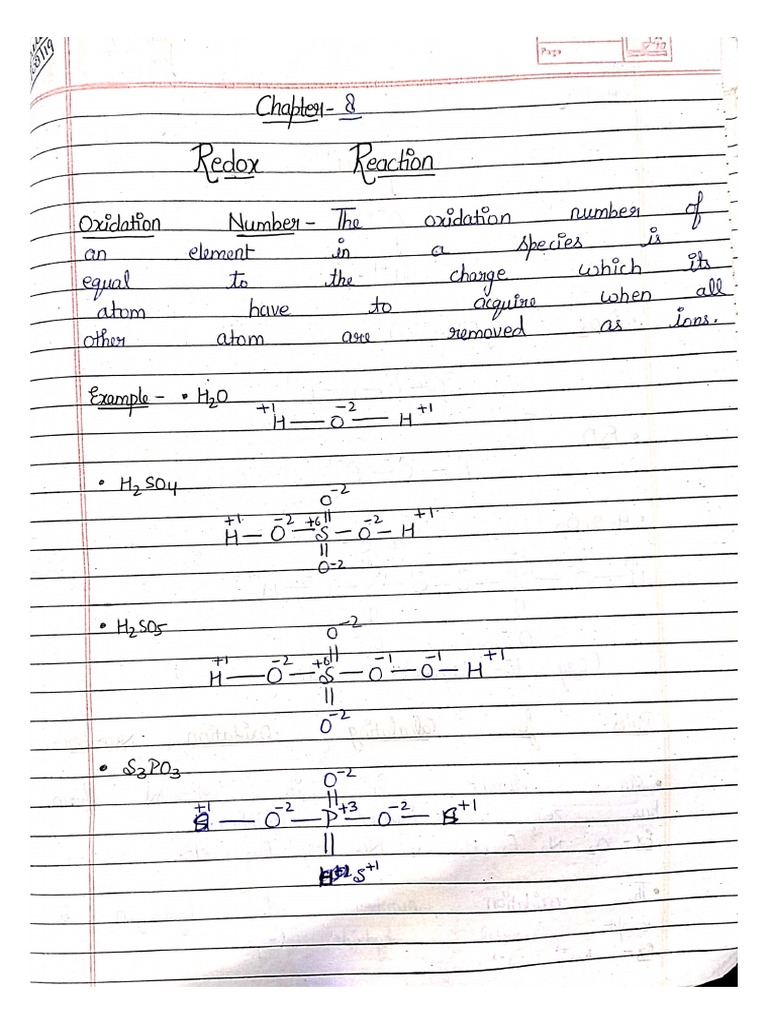 Page
Chapter - 8
Redox Reaction
Oxidation Number - The oxidation number of
an element in a species is
equal to the charge which its
atom have to acquire when all
other atom are removed as ions.
Example - • H₂O
+1 -2 +1
H — O — H
• H₂SO₄
O⁻²
||
+1 -2 +6 -2 +1
H — O — S — O — H
||
O⁻²
• H₂SO₅
O⁻²
||
+1 -2 +6 -1 -1 +1
H — O — S — O — O — H
||
O⁻²
• S₃PO₃
O⁻²
||
+1 -2 +3 -2 +1
S — O — P — O — S
||
S⁺¹